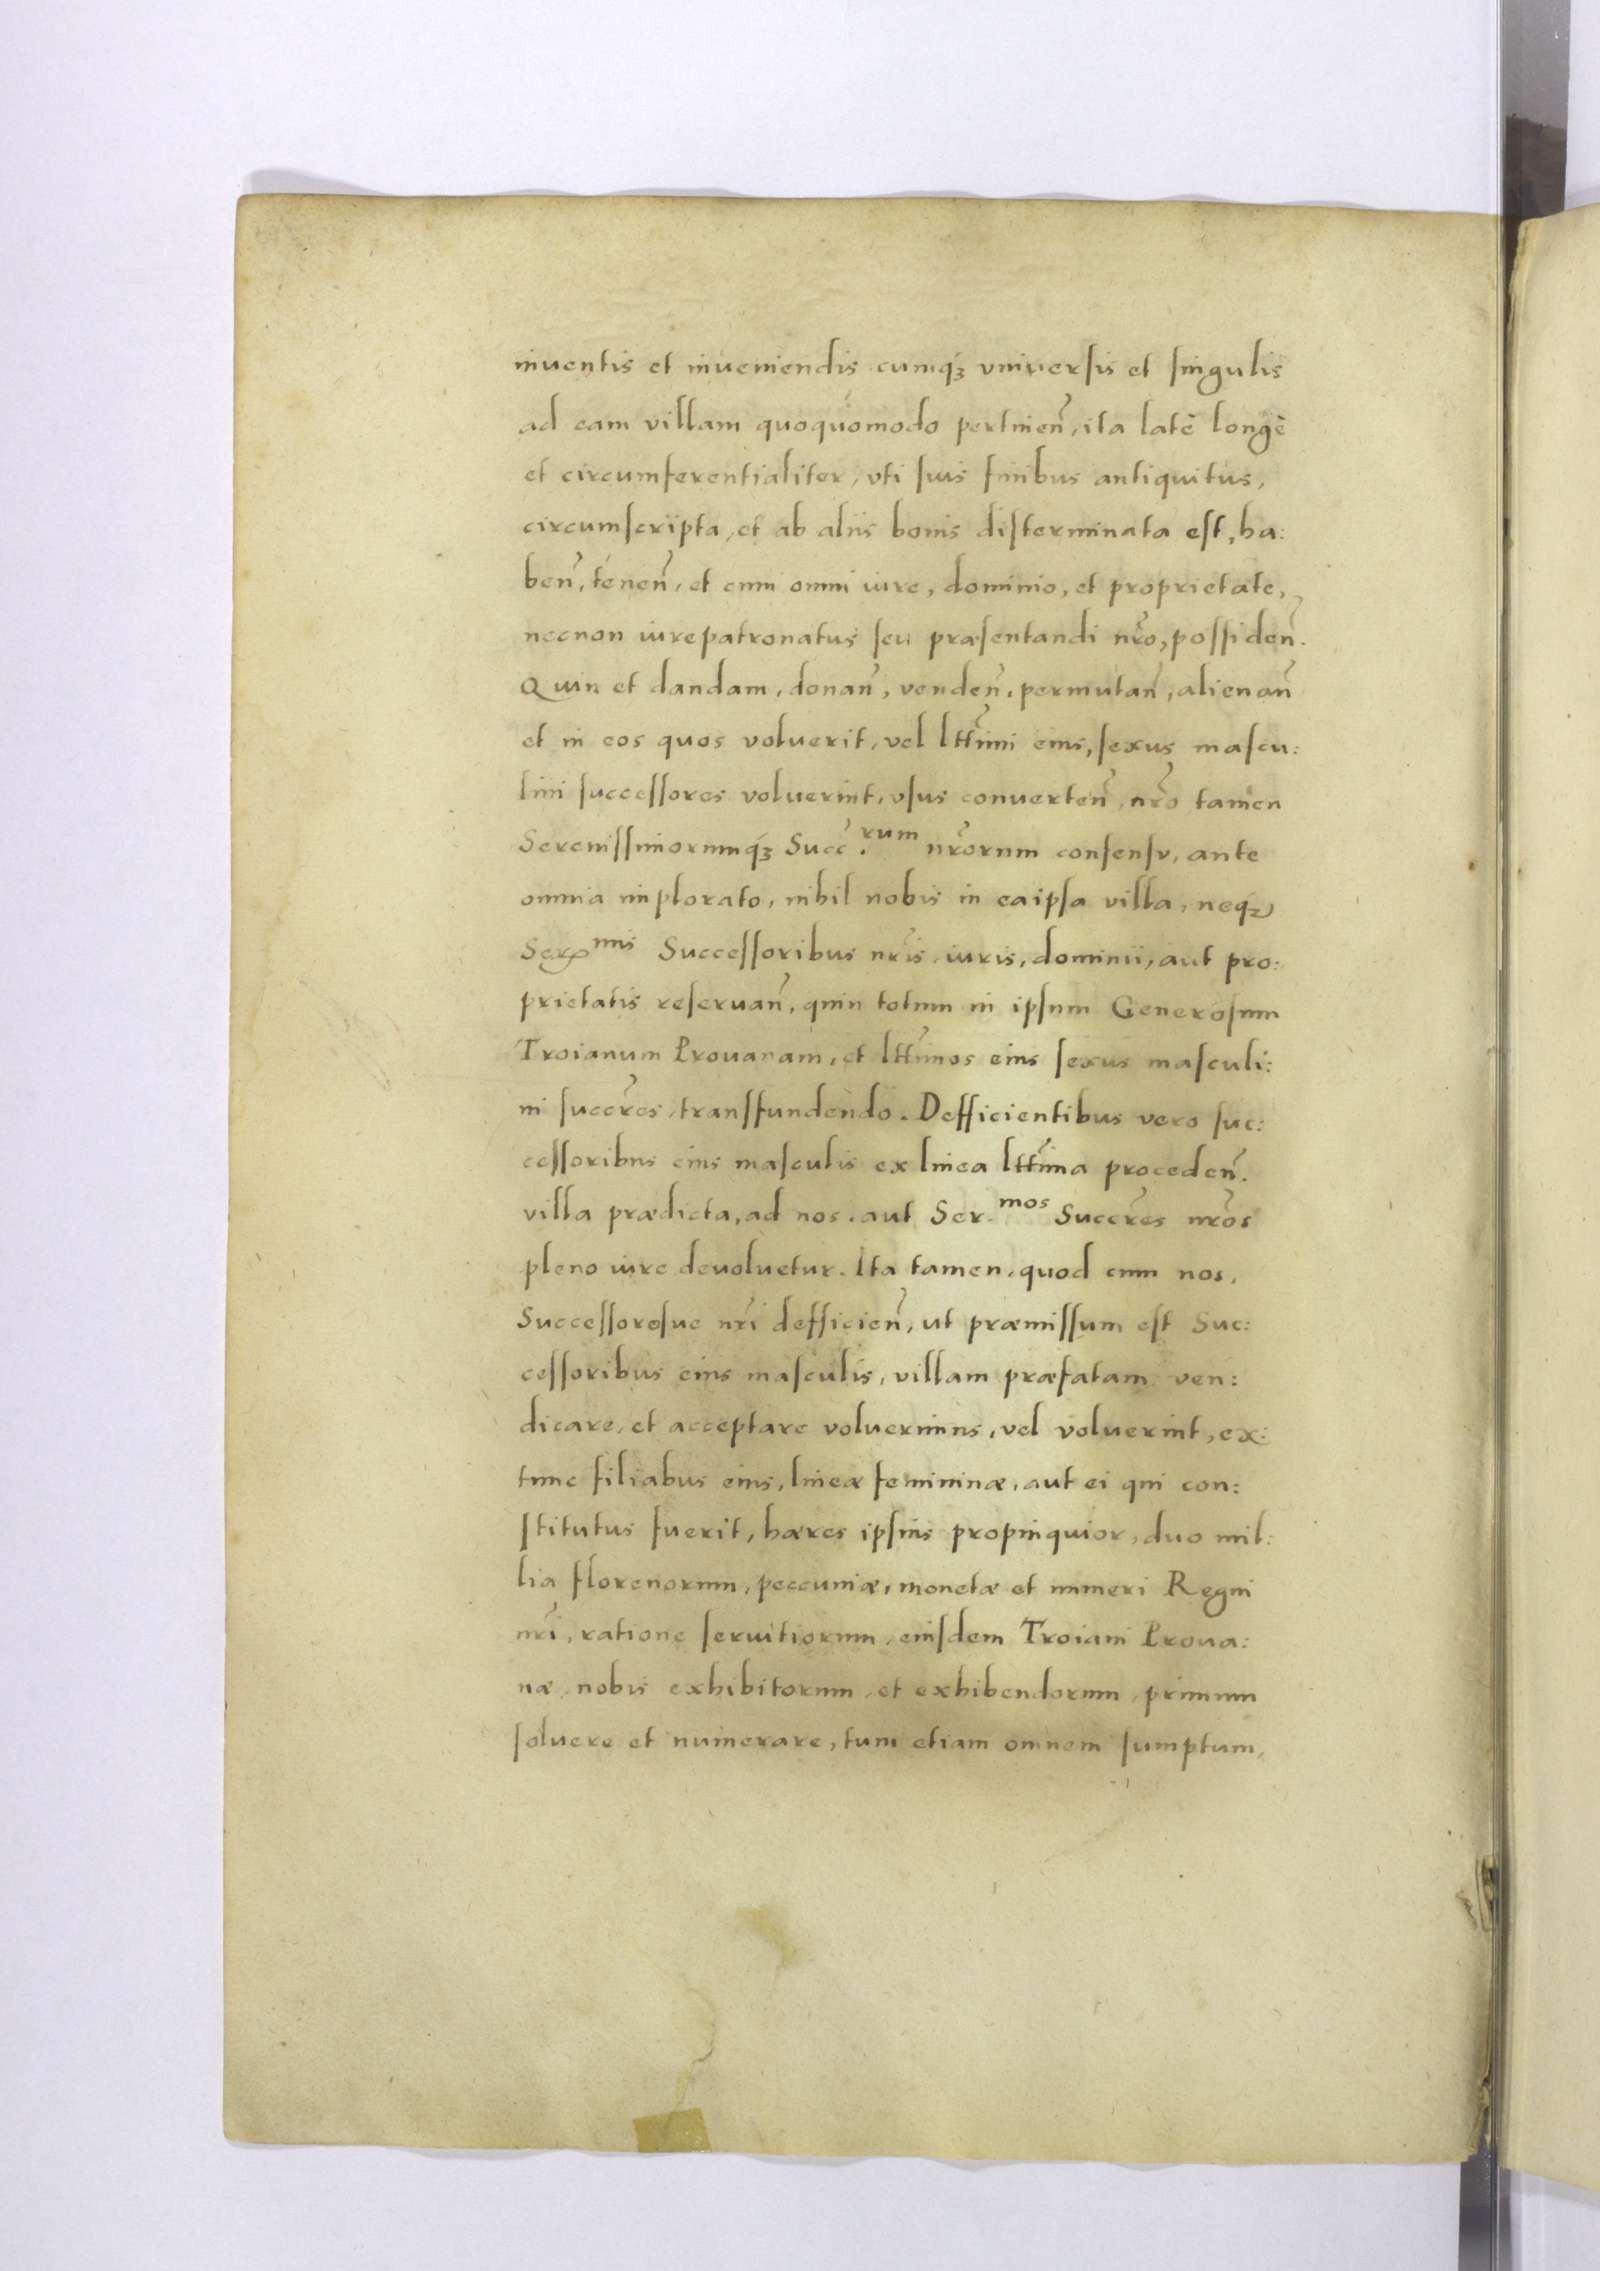 inuentis et inueniendis cumq́ꝫ vniuersis et singulis
ad eam villam quoquomodo pertinen̄, ita latè longè
et circumferentialiter, vti suis finibus antiquitus,
circumscripta, et ab aliis bonis disterminata est, ha:
ben̄, tenen̄, et cum omni iure, dominio, et proprietate,
necnon iurepatronatus seu præsentandi nr̄o, possiden̄.
Quin et dandam, donan̄, venden̄, permutan̄, alienan̄
et in eos quos voluerit, vel ltt̄imi eius, sexus mascu:
lini successores voluerint, vsus conuerten̄, nr̄o tamen
Serenissimorumq́ꝫ Succ̄.rum nr̄orum consensu, ante
omnia implorato, nihil nobis in eaipsa villa, neqꝫ
Ser.mis Successoribus nr̄is iuris, dominii, aut pro:
prietatis reseruan̄, quin totum in ipsum Generosum
Troianum Prouanam, et ltt̄imos eius sexus masculi:
ni succr̄es, transfundendo. Defficientibus vero suc:
cessoribus eius masculis ex linea ltt̄ima proceden̄.
villa prædicta, ad nos, aut Ser.mos Succr̄es nr̄os
pleno iure deuoluetur. Ita tamen, quod cum nos,
Successoresue nr̄i defficien̄, ut præmissum est Suc:
cessoribus eius masculis, villam præfatam ven:
dicare, et acceptare voluerimus, vel voluerint, ex:
tunc filiabus eius, lineæ femininæ, aut ei qui con:
stitutus fuerit, hæres ipsius propinquior, duo mil:
lia florenorum, peccuniæ, monetæ et numeri Regni
nr̄i, ratione seruitiorum, eiusdem Troiani Proua:
næ, nobis exhibitorum, et exhibendorum, primum
soluere et numerare, tum etiam omnem sumptum,